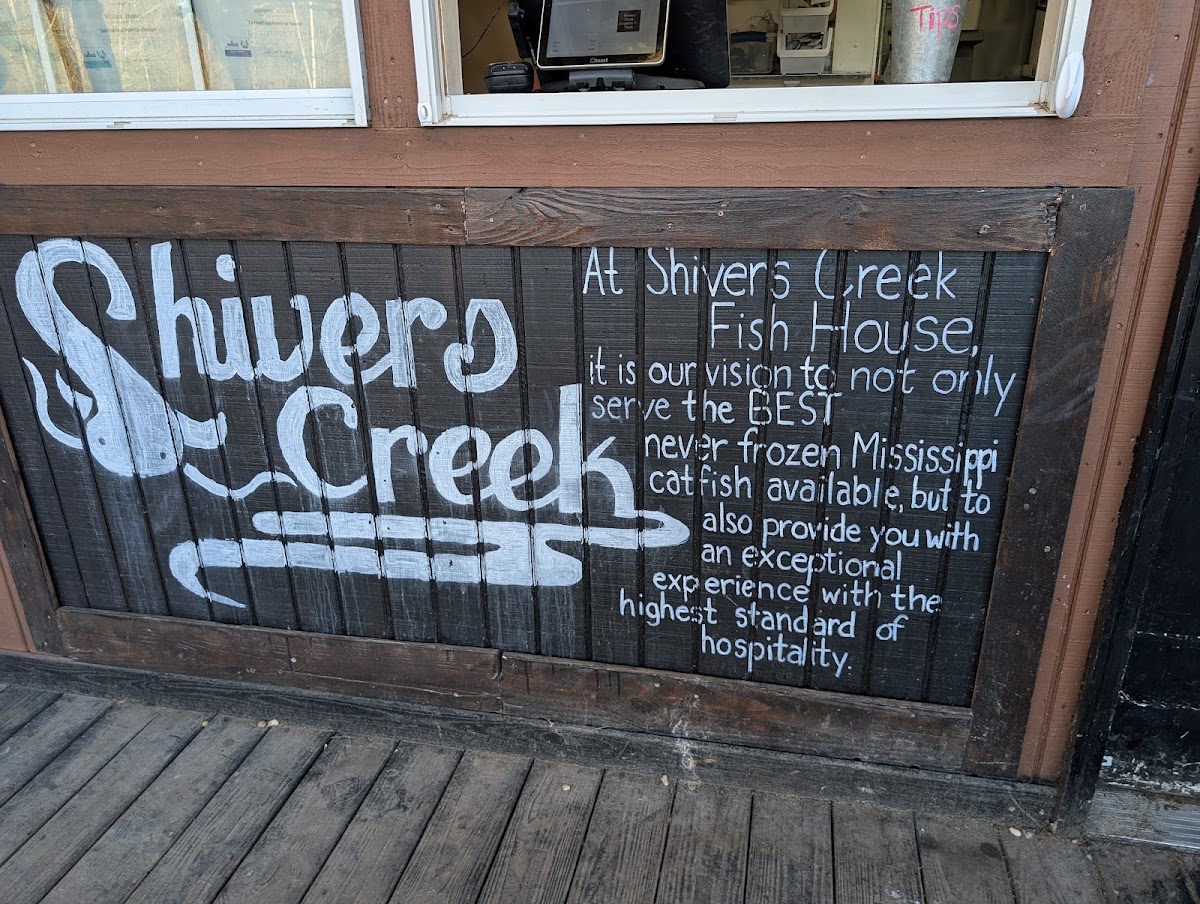 TIPS
toast
Shivers
Creek
At Shivers Creek
Fish House,
it is our vision to not only
serve the BEST
never frozen Mississippi
catfish available, but to
also provide you with
an exceptional
experience with the
highest standard of
hospitality.